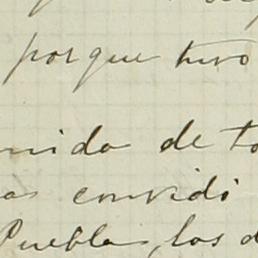 porque tuvo
nida de to
as convidi
Puebla, los d